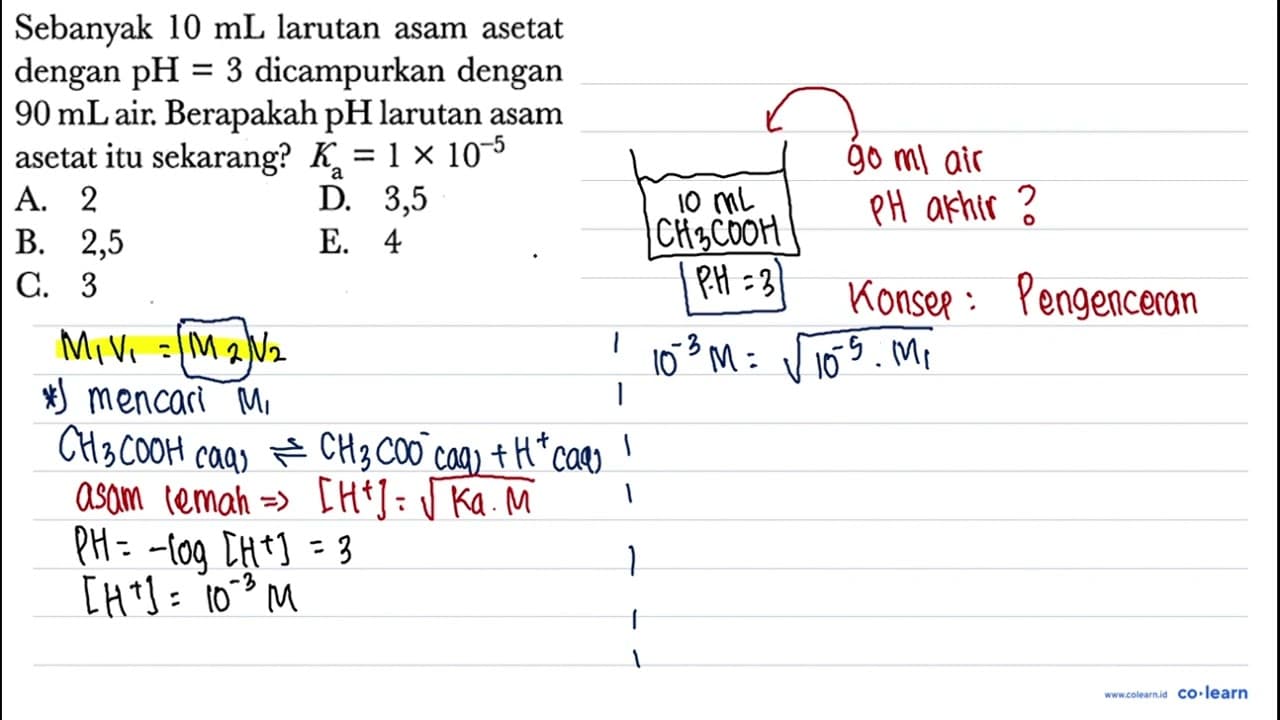 Sebanyak 10 mL larutan asam asetat
dengan pH = 3 dicampurkan dengan
90 mL air. Berapakah pH larutan asam
asetat itu sekarang? Kₐ = 1 × 10⁻⁵
A. 2 D. 3,5
B. 2,5 E. 4
C. 3
10 mL
CH₃COOH
PH = 3
90 ml air
PH akhir ?
Konsep : Pengenceran
M₁V₁ = M₂V₂
*) mencari M₁
CH₃COOH (aq) ⇌ CH₃COO⁻ (aq) + H⁺ (aq)
asam lemah => [H⁺] = √Ka . M
PH = -log [H⁺] = 3
[H⁺] = 10⁻³ M
10⁻³ M = √10⁻⁵ . M₁
www.colearn.id co·learn